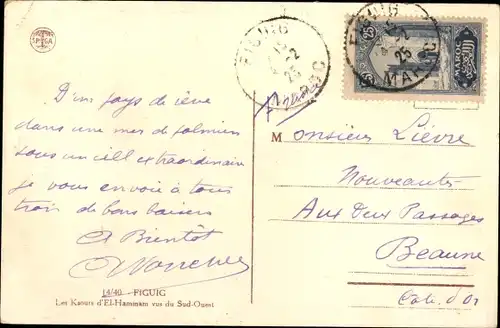 FIGUIG
15
2
25
MAROC
FIGUIG
15
2
25
MAROC
25
MAROC
D'un pays de rêve
dans une mer de palmiers
sous un ciel extraordinaire
je vous envoie à tous
trois de bons baisers
A Bientôt
Monsieur Lièvre
Nouveautés
Aux Deux Passages
Beaune
Côte d'Or
14/40 - FIGUIG
Les Ksours d'El-Hammam vus du Sud-Ouest